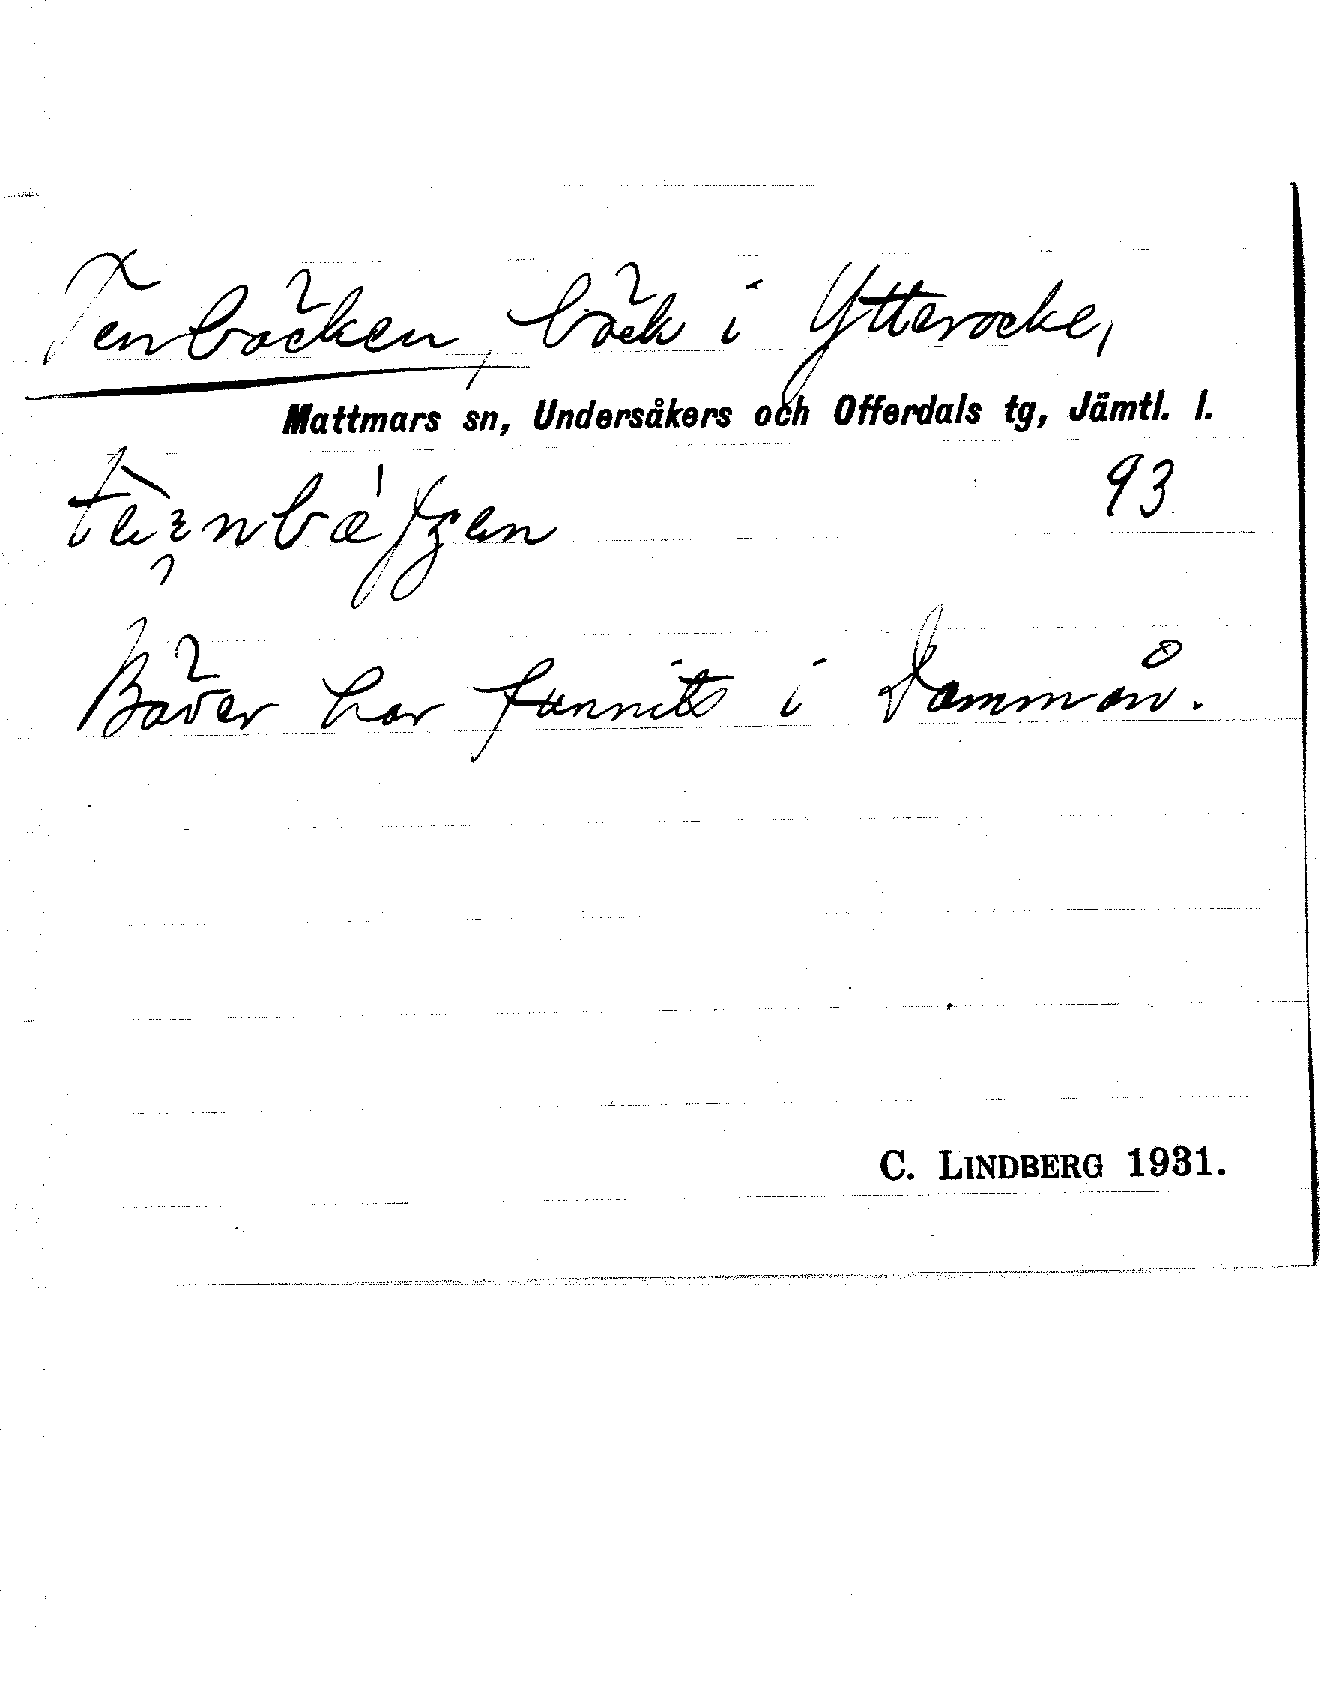 Tenbäcken, bäck i Ytterocke,
Mattmars sn, Undersåkers och Offerdals tg, Jämtl. l.
93
Bäver har funnits i Dammån.
C. LINDBERG 1931.